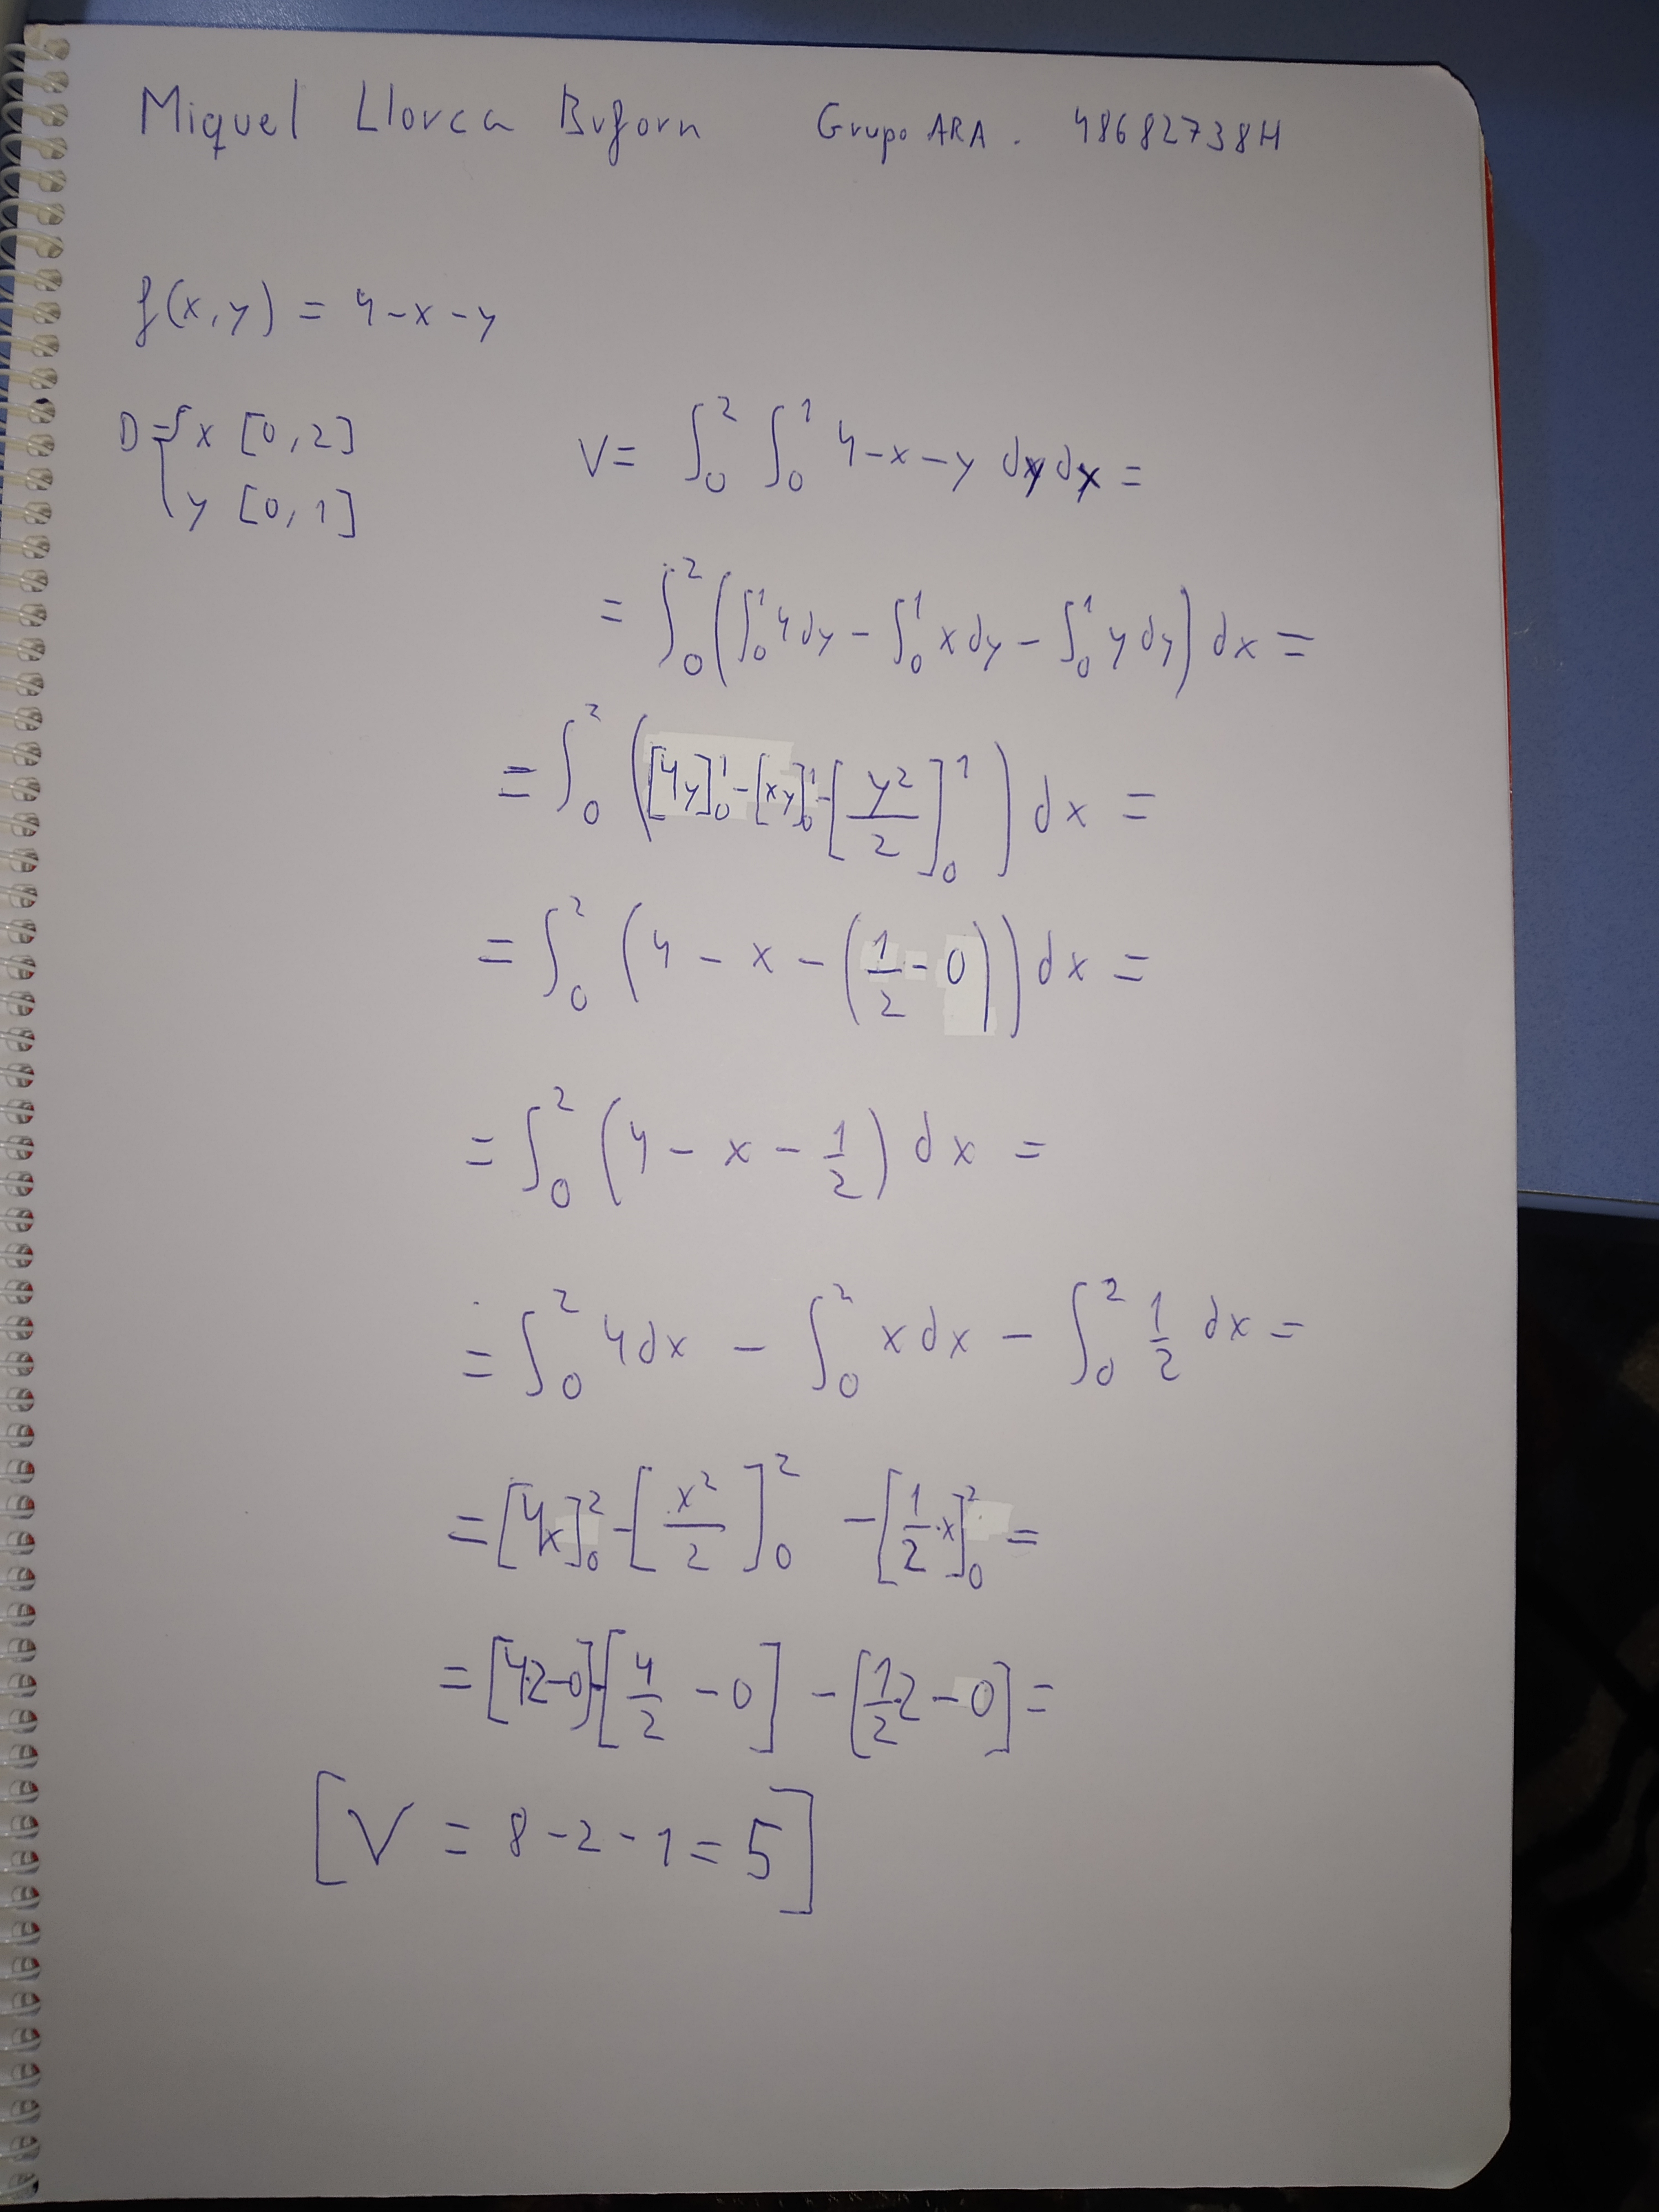 Miquel Llorca Buforn Grupo ARA. 48682738H
f(x,y) = 4-x-y
D = { x [0,2]
y [0,1]
V = ∫₀² ∫₀¹ 4-x-y dy dx =
= ∫₀² (∫₀¹ 4dy - ∫₀¹ x dy - ∫₀¹ y dy) dx =
= ∫₀² ([4y]₀¹ - [xy]₀¹ - [y²/2]₀¹) dx =
= ∫₀² (4 - x - (1/2 - 0)) dx =
= ∫₀² (4 - x - 1/2) dx =
= ∫₀² 4dx - ∫₀² x dx - ∫₀² 1/2 dx =
= [4x]₀² - [x²/2]₀² - [1/2·x]₀² =
= [4·2-0] - [4/2 - 0] - [1/2·2 - 0] =
[V = 8-2-1 = 5]